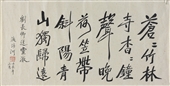 蒼〻竹林
寺杳〻鐘
聲晚
荷笠帶
斜陽青
山獨歸遠
劉長卿送靈澈